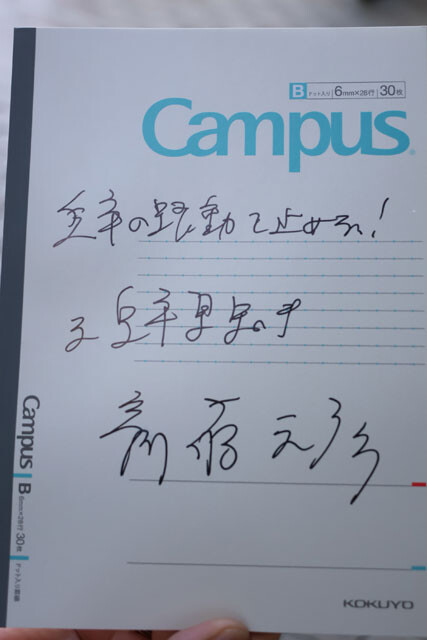 B ドット入り 6mm×28行 30枚
Campus
兵庫の躍動を止めない!
兵庫県知事
斎藤元彦
Campus B 6mm×28行 30枚 ドット入り罫線
KOKUYO